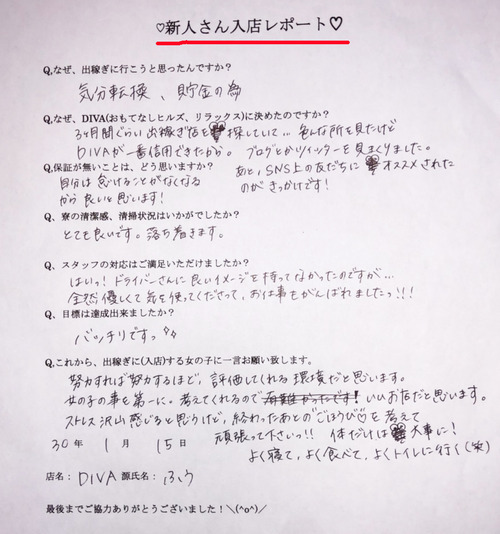 ♡新人さん入店レポート♡
Q,なぜ、出稼ぎに行こうと思ったんですか?
気分転換、貯金の為
Q,なぜ、DIVA(おもてなしヒルズ、リラックス)に決めたのですか?
3ヶ月間ぐらい出稼ぎ店を探していて… 色んな所を見たけど
DIVAが一番信用できたから。 ブログとかツイッターを見まくりました。
あと、SNS上の友だちにオススメされた
のがきっかけです!
Q,保証が無いことは、どう思いますか?
自分は怠けることがなくなる
から良いと思います!
Q、寮の清潔感、清掃状況はいかがでしたか?
とても良いです。落ち着きます。
Q、スタッフの対応はご満足いただけましたか?
はいっ! ドライバーさんに良いイメージを持ってなかったのですが…
全然優しくて気を使ってくださって、お仕事をがんばれましたっ!!!
Q、目標は達成出来ましたか?
バッチリですっ
Q,これから、出稼ぎに(入店)する女の子に一言お願い致します。
努力すれば努力するほど、評価してくれる環境だと思います。
女の子の事を第一に。考えてくれるので いいお店だと思います。
ストレス沢山感じると思うけど、終わったあとの"ごほうび"♡を考えて
頑張って下さいっ!! 体だけは大事に!
よく寝て、よく食べて、よくトイレに行く(笑)
30年 1月 15日
店名: DIVA 源氏名: ふう
最後までご協力ありがとうございました!＼(^o^)／